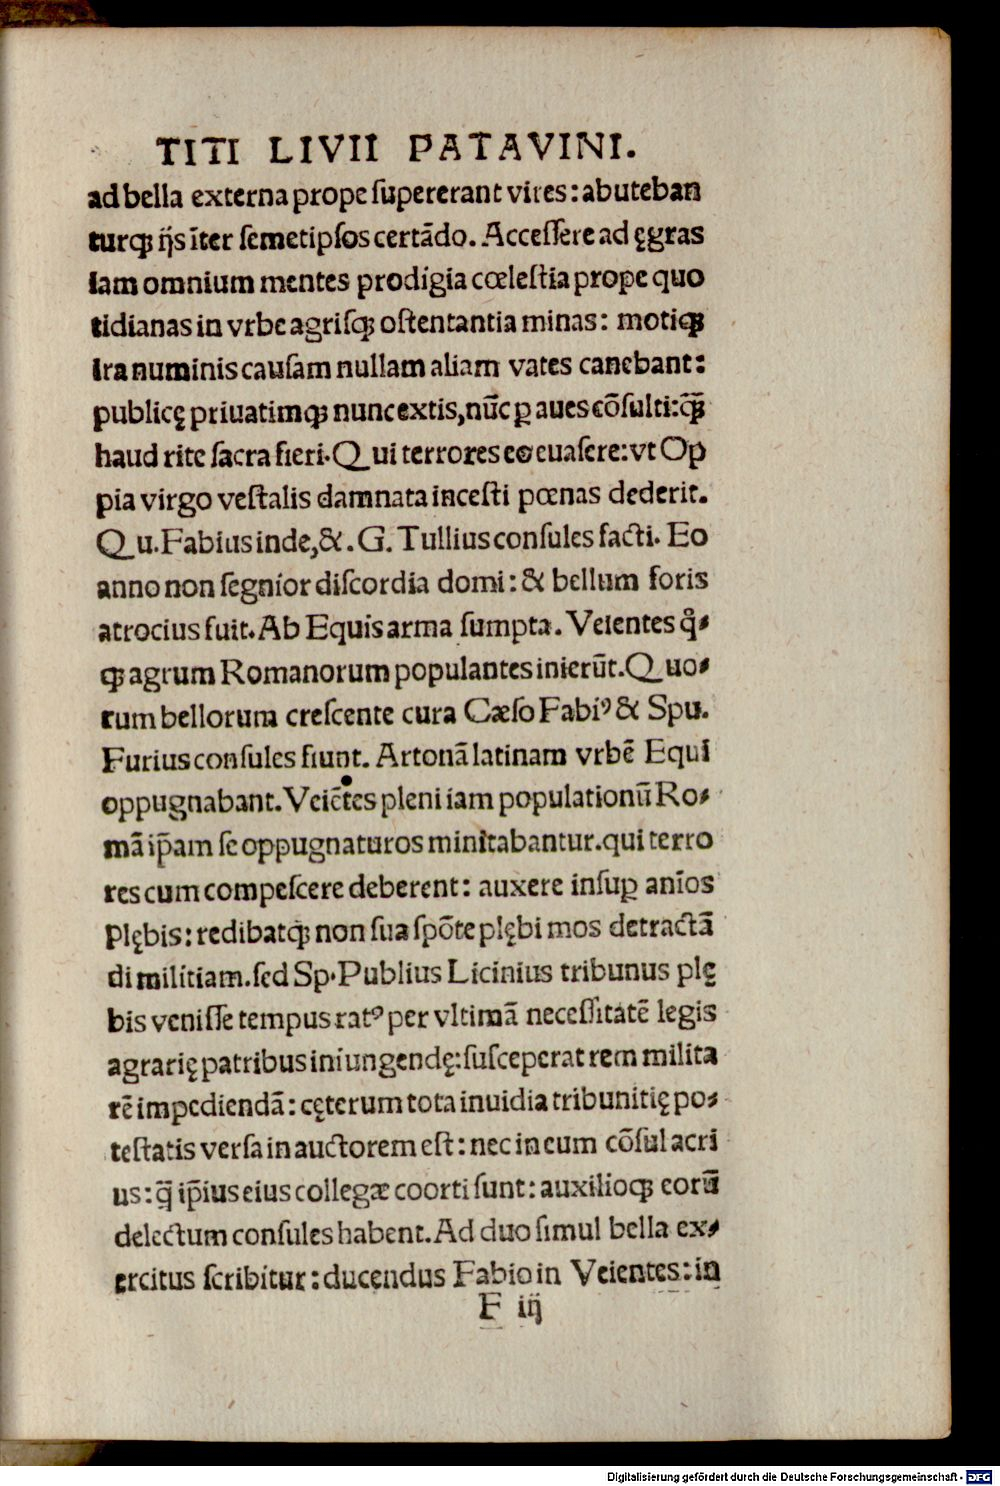 TITI LIVII PATAVINI.
ad bella externa prope ſupererant vires: abuteban
turqꝫ ijs ĩter ſemetipſos certãdo. Acceſſere ad ęgras
iam omnium mentes prodigia cœleſtia prope quo
tidianas in vrbe agriſqꝫ oſtentantia minas: motiqꝫ
ira numinis cauſam nullam aliam vates canebant:
publicę priuatimqꝫ nunc extis, nũc ꝑ aues cõſulti: q̃ꝫ
haud rite ſacra fieri. Qui terrores eo euaſere: vt Op
pia virgo veſtalis damnata inceſti pœnas dederit.
Qu. Fabius inde, &. G. Tullius conſules facti. Eo
anno non ſegnior diſcordia domi: & bellum foris
atrocius fuit. Ab Equis arma ſumpta. Veientes qͦ⸗
qꝫ agrum Romanorum populantes inierũt. Quo⸗
rum bellorum creſcente cura Cæſo Fabiꝰ & Spu.
Furius conſules fiunt. Artonã latinam vrbẽ Equi
oppugnabant. Veiẽtes pleni iam populationũ Ro⸗
mã ip̃am ſe oppugnaturos minitabantur. qui terro
res cum compeſcere deberent: auxere inſuꝑ anĩos
plębis: redibatqꝫ non ſua ſpõte plębi mos detractã
di militiam. ſed Sp. Publius Licinius tribunus plę
bis veniſſe tempus ratꝰ per vltimã neceſſitatẽ legis
agrarię patribus iniungendę: ſuſceperat rem milita
rẽ impediendã: cęterum tota inuidia tribunitię po⸗
teſtatis verſa in auctorem eſt: nec in eum cõſul acri
us: q̃ ip̃ius eius collegæ coorti ſunt: auxilioqꝫ eorũ
delectum conſules habent. Ad duo ſimul bella ex⸗
ercitus ſcribitur: ducendus Fabio in Veientes: in
F iij
Digitalisierung gefördert durch die Deutsche Forschungsgemeinschaft - DFG